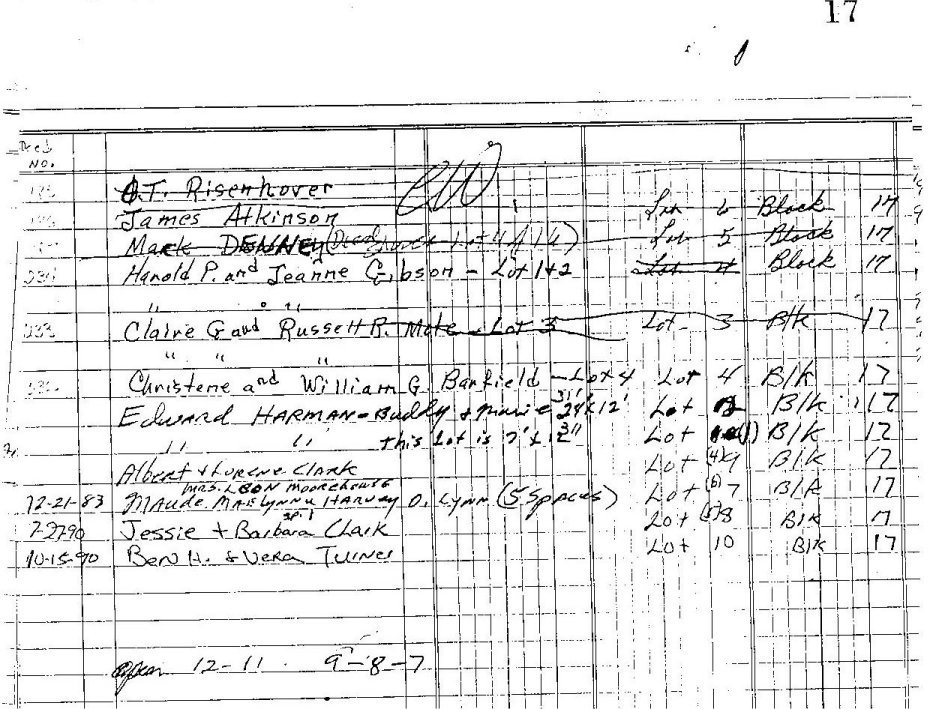 17
Deed
No.
O.T. Risenhover
James Atkinson Lot 6 Block 17
Mark DENNEY (Deed Lot 5 Block 17
234 Harold P. and Jeanne Gibson - Lot 1+2 Lot 4 Block 17
" " "
233 Claire G and Russett R. Mote - Lot 3 Lot 3 Blk 17
" " "
Christene and William G. Banfield - Lot 4 Lot 4 Blk 17
Edward HARMAN - Buddy + 12' Lot Blk 17
" " this Lot is Lot Blk 17
Albert + Lurene Clark Lot (4) 9 Blk 17
Mrs. LEON Moorehouse
12-21-83 MAUDE HARVEY O. Lynn (5 Spaces) Lot (6) 7 Blk 17
sp. 1
7-27-90 Jessie + Barbara Clark Lot (5) 8 Blk 17
10-15-90 Ben H. & Vera Turner Lot 10 Blk 17
open 12-11 9-8-7